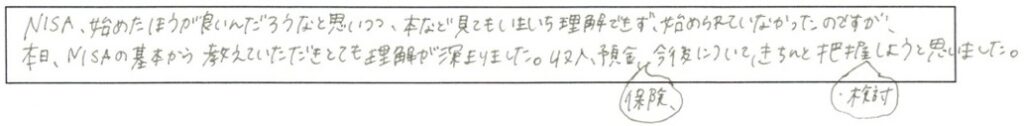 NISA、始めたほうが良いんだろうなと思いつつ、本など見てもいまいち理解できず、始められていなかったのですが、
本日、NISAの基本から教えていただきとても理解が深まりました。収入、預金、今後について、きちんと把握しようと思いました。
保険、
・検討